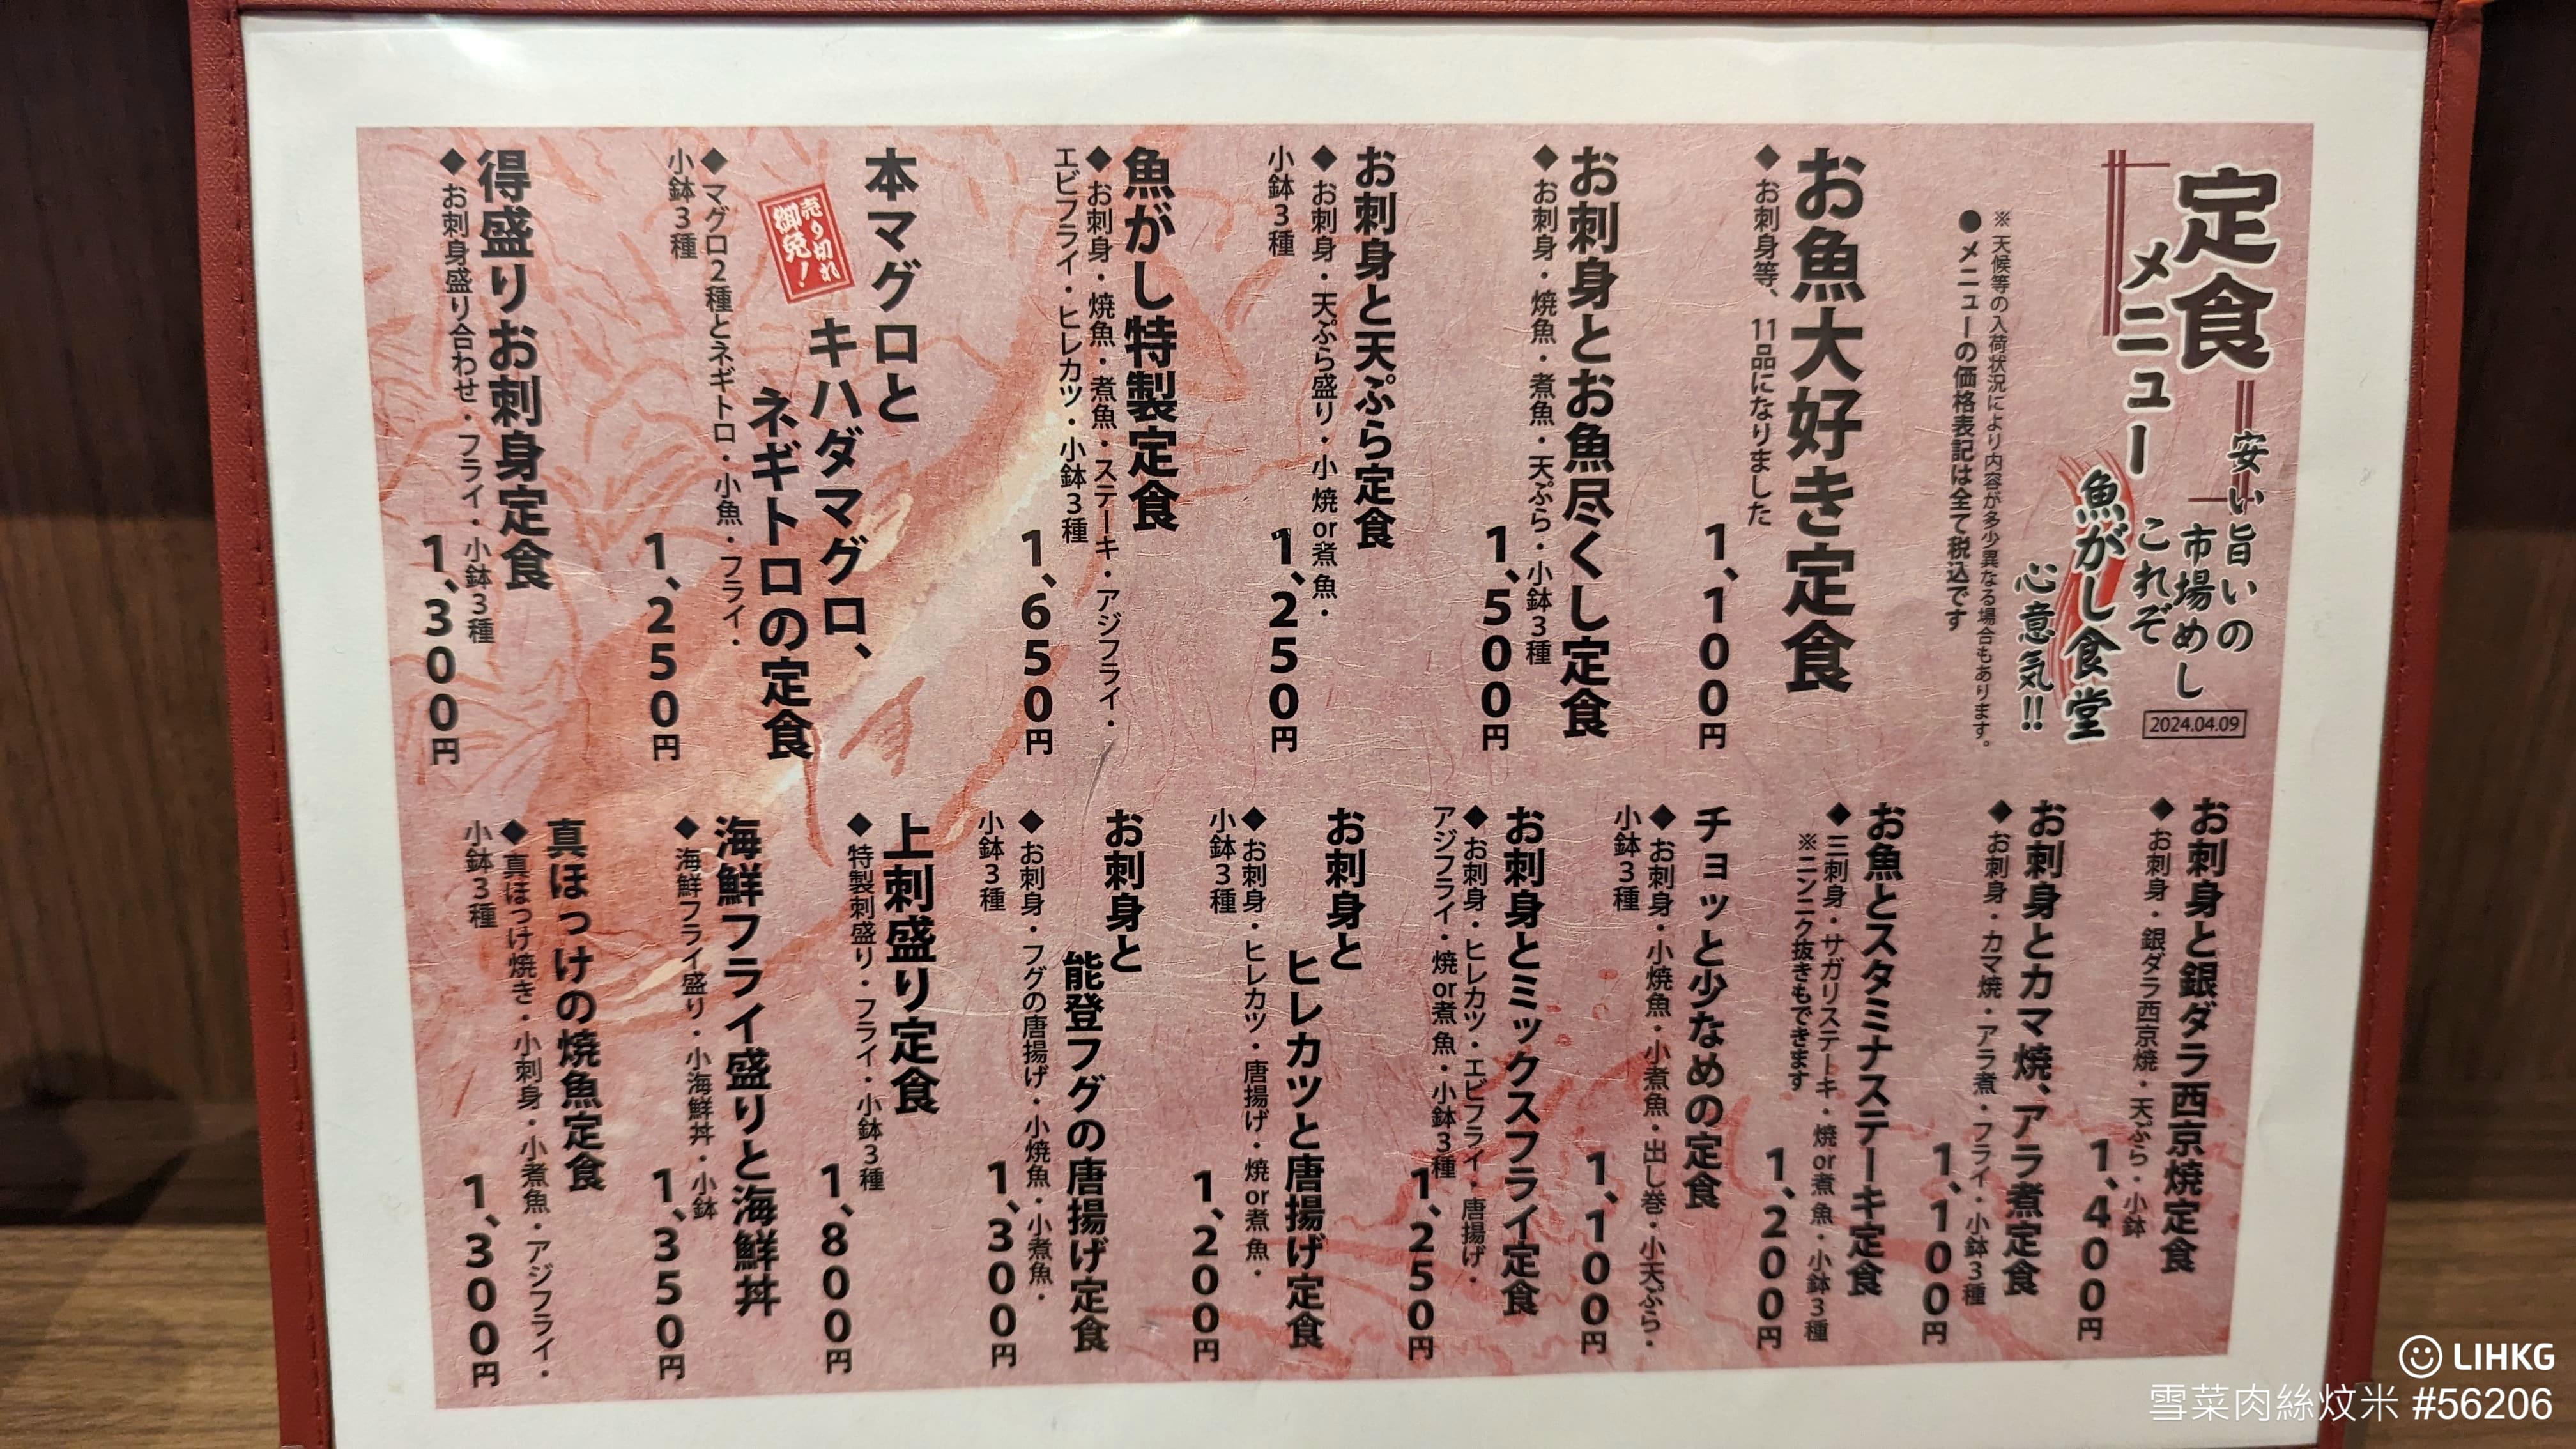 定食
メニュー
安い旨いの
市場めし
これぞ
魚がし食堂
心意気!!
2024.04.09
※天候等の入荷状況により内容が多少異なる場合もあります。
●メニューの価格表記は全て税込です
お魚大好き定食
◆お刺身等、11品になりました
1、100円
お刺身とお魚尽くし定食
◆お刺身・焼魚・煮魚・天ぷら・小鉢3種
1、500円
お刺身と天ぷら定食
◆お刺身・天ぷら盛り・小焼or煮魚・
小鉢3種
1、250円
魚がし特製定食
◆お刺身・焼魚・煮魚・ステーキ・アジフライ・
エビフライ・ヒレカツ・小鉢3種
1、650円
本マグロと
キハダマグロ、
ネギトロの定食
売り切れ
御免!
◆マグロ2種とネギトロ・小魚・フライ・
小鉢3種
1、250円
得盛りお刺身定食
◆お刺身盛り合わせ・フライ・小鉢3種
1、300円
お刺身と銀ダラ西京焼定食
◆お刺身・銀ダラ西京焼・天ぷら・小鉢
1、400円
お刺身とカマ焼、アラ煮定食
◆お刺身・カマ焼・アラ煮・フライ・小鉢3種
1、100円
お魚とスタミナステーキ定食
◆三刺身・サガリステーキ・焼or煮魚・小鉢3種
※ニンニク抜きもできます
1、200円
チョッと少なめの定食
◆お刺身・小焼魚・小煮魚・出し巻・小天ぷら・
小鉢3種
1、100円
お刺身とミックスフライ定食
◆お刺身・ヒレカツ・エビフライ・唐揚げ・
アジフライ・焼or煮魚・小鉢3種
1、250円
お刺身と
ヒレカツと唐揚げ定食
◆お刺身・ヒレカツ・唐揚げ・焼or煮魚・
小鉢3種
1、200円
お刺身と
能登フグの唐揚げ定食
◆お刺身・フグの唐揚げ・小焼魚・小煮魚・
小鉢3種
1、300円
上刺盛り定食
◆特製刺盛り・フライ・小鉢3種
1、800円
海鮮フライ盛りと海鮮丼
◆海鮮フライ盛り・小海鮮丼・小鉢
1、350円
真ほっけの焼魚定食
◆真ほっけ焼き・小刺身・小煮魚・アジフライ・
小鉢3種
1、300円
LIHKG
雪菜肉絲炆米 #56206